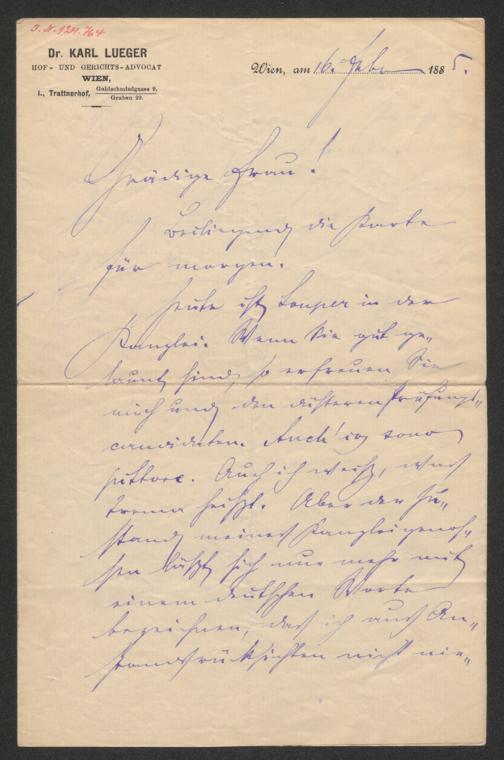 I. N. 124.764
Dr. KARL LUEGER
HOF- UND GERICHTS-ADVOCAT
WIEN,
I., Trattnerhof, Goldschmiedgasse 9.
Graben 29.
Wien, am 16. Febr 1885.
Gnädige Frau!
Beiliegend die Karte
für morgen.
Heute ist Souper in der
Kanzlei. Wenn Sie gut ge-
launt sind, so erfreuen Sie
mich und den düsteren Prüfungs„
candidaten. Anch' io sono
pittore. Auch ich weiß, was
trema heißt. Aber der Zu„
stand meines Kanzleigenos„
sen läßt sich nur mehr mit
einem deutschen Worte
bezeichnen, das ich aus An„
standsrücksichten nicht nie„